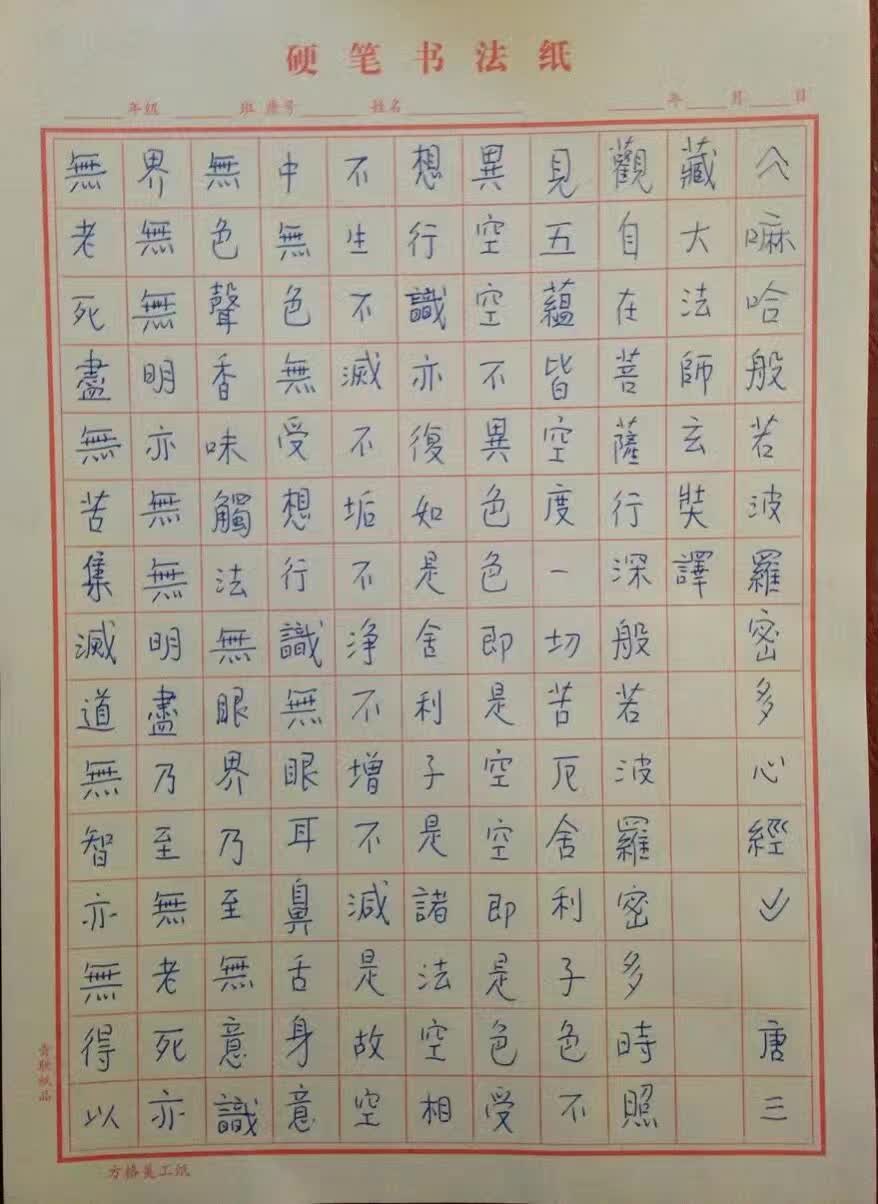 硬笔书法纸
年级 班 座号 姓名 年 月 日
︿嘛哈般若波羅密多心經﹀ 唐三
藏大法師玄奘譯
觀自在菩薩行深般若波羅密多時照
見五蘊皆空度一切苦厄舍利子色不
異空空不異色色即是空空即是色受
想行識亦復如是舍利子是諸法空相
不生不滅不垢不淨不增不減是故空
中無色無受想行識無眼耳鼻舌身意
無色聲香味觸法無眼界乃至無意識
界無無明亦無無明盡乃至無老死亦
無老死盡無苦集滅道無智亦無得以
方格美工纸